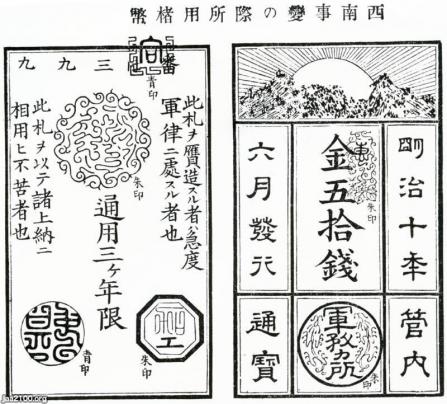 西南事變の際所用楮幣
明治十年
管内
金五拾錢
朱印
軍務所
朱印
六月發行
通寶
番三九九
青印
此札ヲ贋造スル者ハ急度
軍律ニ處スル者也
朱印
通用三ヶ年限
朱印
此札ヲ以テ諸上納ニ
相用ヒ不苦者也
青印
jaa2100.org